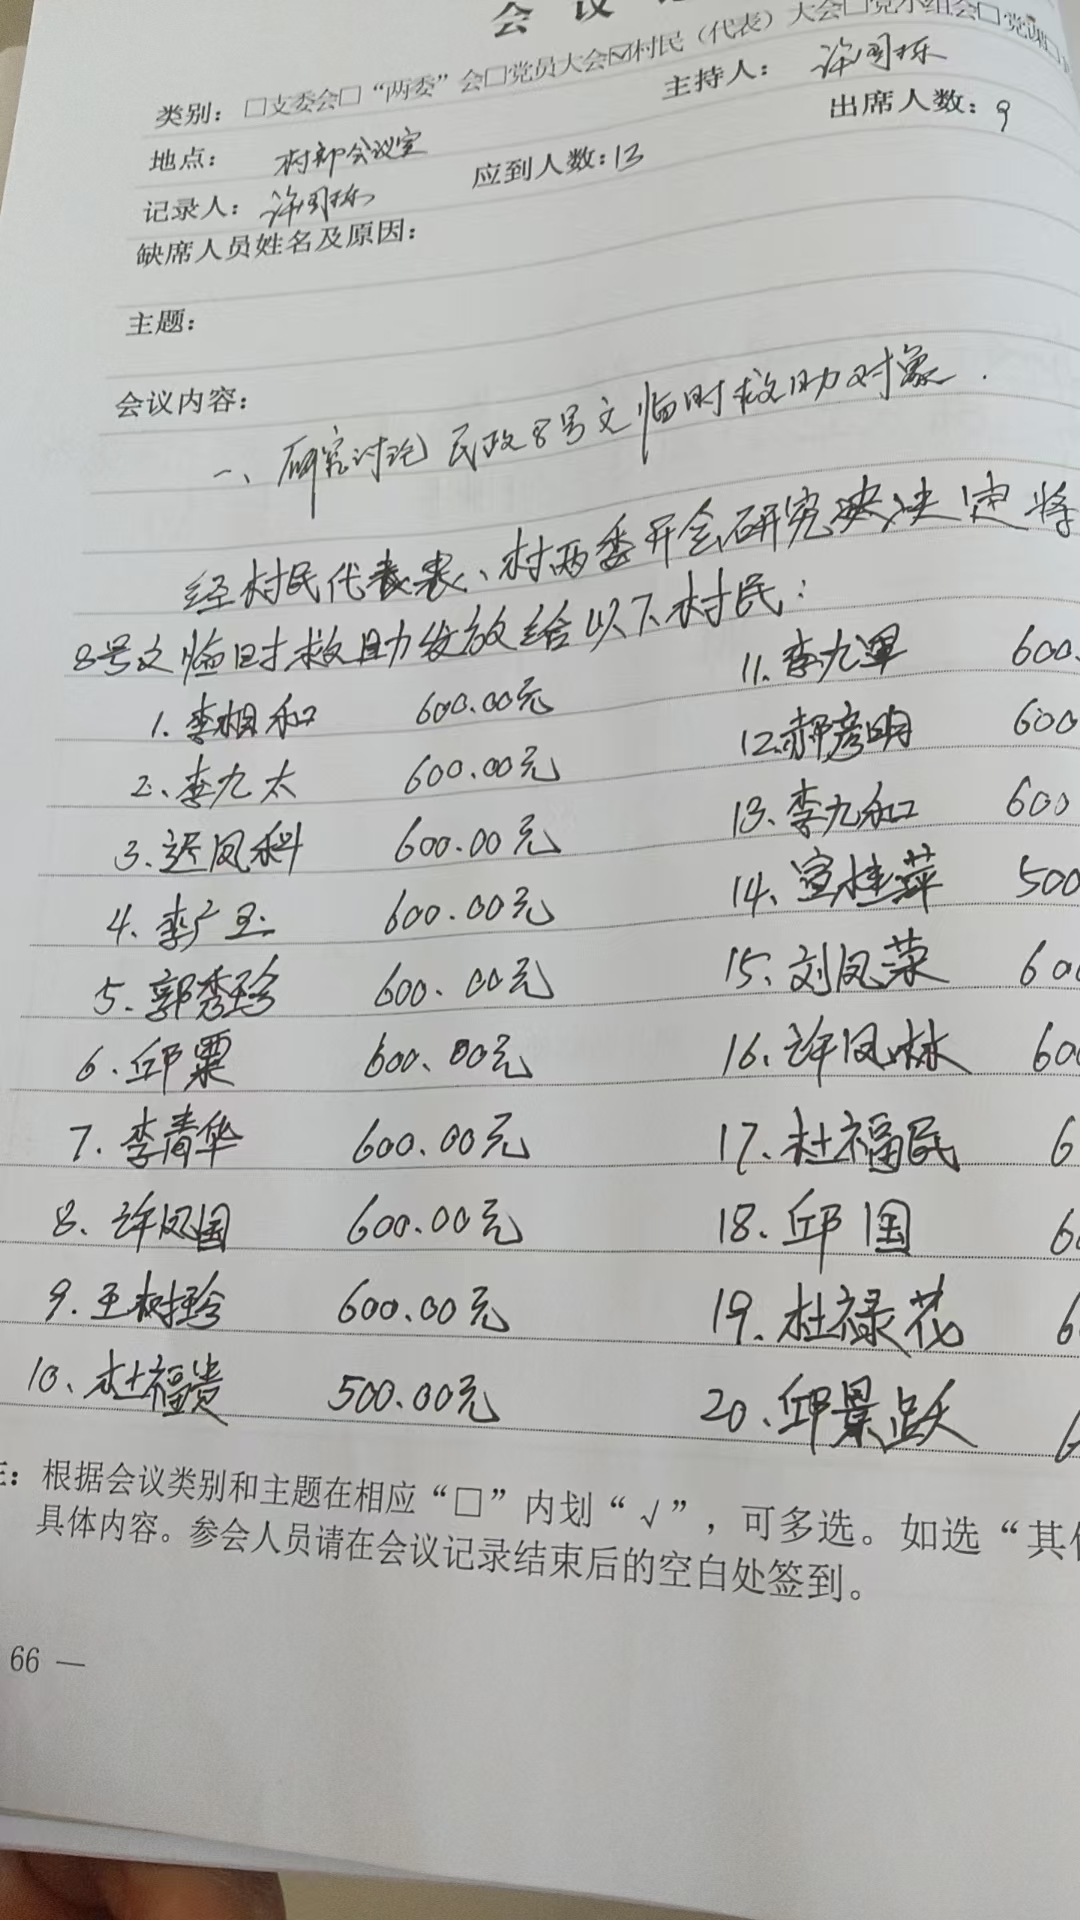 会 议
类别：□支委会□“两委”会□党员大会☑村民（代表）大会□党小组会□党课□
主持人： 许国栋
地点： 村部会议室
出席人数：9
记录人：许国栋 应到人数：13
缺席人员姓名及原因：
主题：
会议内容：
一、研究讨论民政8号文临时救助对象.
经村民代表、村两委开会研究决定将
8号文临时救助发放给以下村民：
1.李相和 600.00元 11.李九军 600.
2、李九太 600.00元 12.郝彦明 600
3.迟凤科 600.00元 13、李九和 600
4.李广玉 600.00元 14、宣桂萍 500
5.郭秀珍 600.00元 15、刘凤荣 600
6.邱粟 600.00元 16.许凤林 60
7.李青华 600.00元 17.杜福民 6
8、许凤国 600.00元 18.邱国 6
9.王树珍 600.00元 19.杜禄花 6
10、杜福贵 500.00元 20.邱景跃
注：根据会议类别和主题在相应“□”内划“√”，可多选。如选“其他
具体内容。参会人员请在会议记录结束后的空白处签到。
66 —